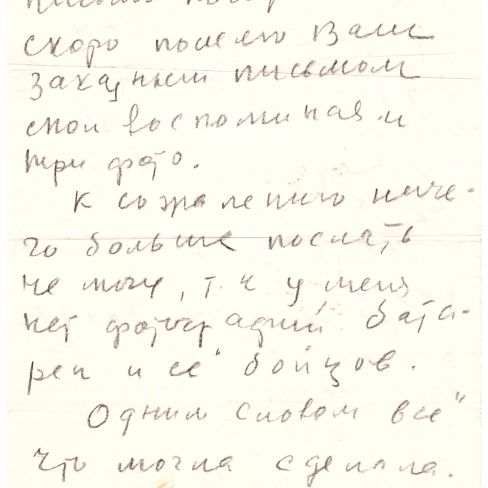 скоро пошлю Вам
заказным письмом
свои воспоминая и
три фото.
К сожалению ниче-
го больше послать
не могу, т.к у меня
нет фотографий бата-
реи и ее бойцов.
Одним словом все
что могла сделала.